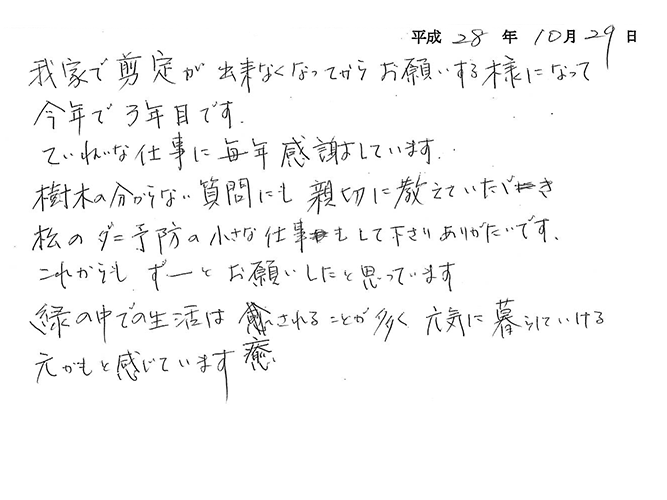 平成 28 年 10月 29 日
我家で剪定が出来なくなってからお願いする様になって
今年で3年目です.
ていねいな仕事に毎年感謝しています.
樹木の分からない質問にも親切に教えていただき
松のダニ予防の小さな仕事もして下さりありがたいです.
これからも ずーとお願いしたと思っています
緑の中での生活は癒されることが多く元気に暮らしていける
元かもと感じています
癒